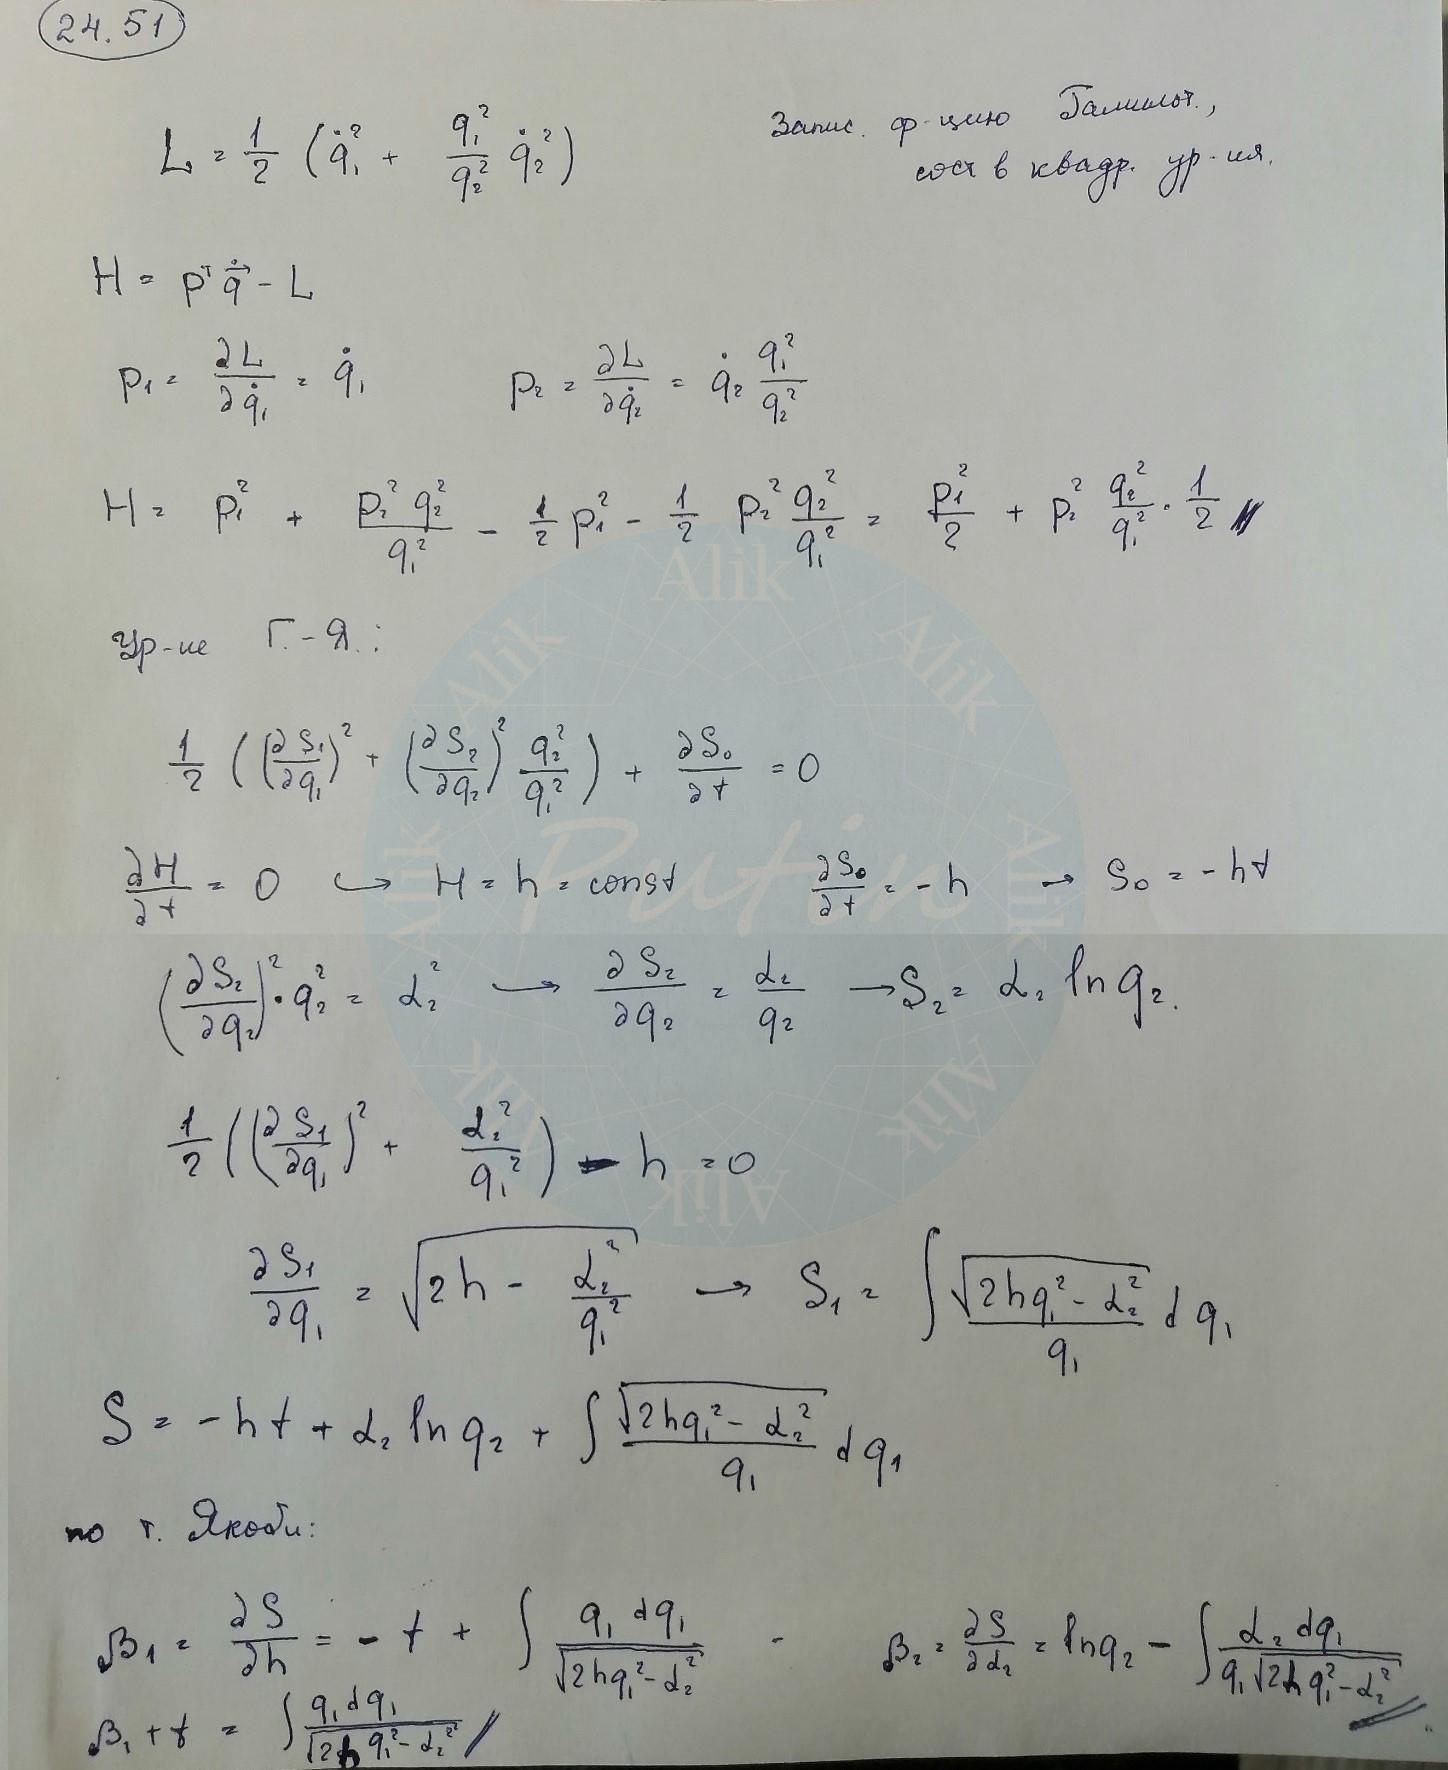 24.51
L = 1/2 (q̇₁² + q₁²/q₂² q̇₂²)
Запис. ф-цию Гамильт.,
сост в квадр. ур-ия.
H = pᵀ q̇⃗ - L
p₁ = ∂L/∂q̇₁ = q̇₁ p₂ = ∂L/∂q̇₂ = q̇₂ q₁²/q₂²
H = p₁² + p₂² q₂²/q₁² - 1/2 p₁² - 1/2 p₂² q₂²/q₁² = p₁²/2 + p₂² q₂²/q₁² · 1/2 //
Ур-ие Г.-Я.:
1/2 ((∂S₁/∂q₁)² + (∂S₂/∂q₂)² q₂²/q₁²) + ∂S₀/∂t = 0
∂H/∂t = 0 → H = h = const ∂S₀/∂t = -h → S₀ = -ht
(∂S₂/∂q₂)² · q₂² = α₂² → ∂S₂/∂q₂ = α₂/q₂ → S₂ = α₂ ln q₂.
1/2 ((∂S₁/∂q₁)² + α₂²/q₁²) - h = 0
∂S₁/∂q₁ = √(2h - α₂²/q₁²) → S₁ = ∫ √(2hq₁² - α₂²)/q₁ dq₁
S = -ht + α₂ ln q₂ + ∫ √(2hq₁² - α₂²)/q₁ dq₁
по т. Якоби:
β₁ = ∂S/∂h = - t + ∫ q₁ dq₁/√(2hq₁² - α₂²) - β₂ = ∂S/∂α₂ = ln q₂ - ∫ α₂ dq₁/(q₁√(2hq₁² - α₂²)) //
β₁ + t = ∫ q₁ dq₁/√(2hq₁² - α₂²) //
Alik
Alik
Alik
Alik
Alik
Alik
Alik
Alik
Putin